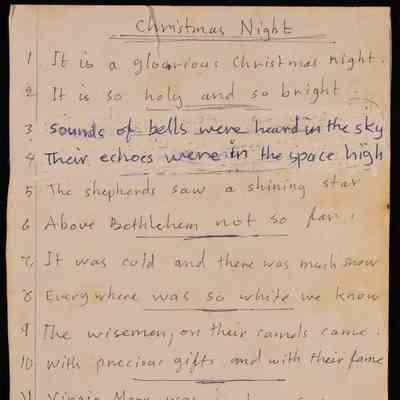 Christmas Night
1 It is a gloarious christmas night.
2 It is so holy and so bright.
3 sounds of bells were heard in the sky
4 Their echoes were in the space high
5 The shepherds saw a shining star
6 Above Bethlehem not so far.
7, It was cold and there was much snow
8 Everywhere was so white we know
9 The wisemen, on their camels came.
10 with precious gifts and with their fame
11 Virgin Mary was